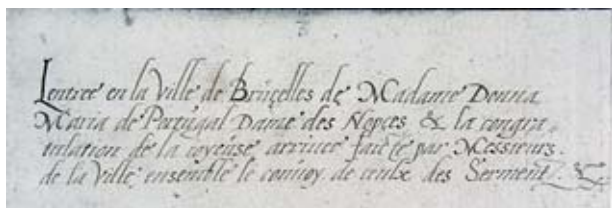 Lentree en la Ville de Bruçelles de Madame Donna
Maria de Portugal Dame des Nopces & la congra-
tulation de la ioyeuse arriuee faicte par Messieurs
de la Ville ensemble le conuoy de ceulx des Serment